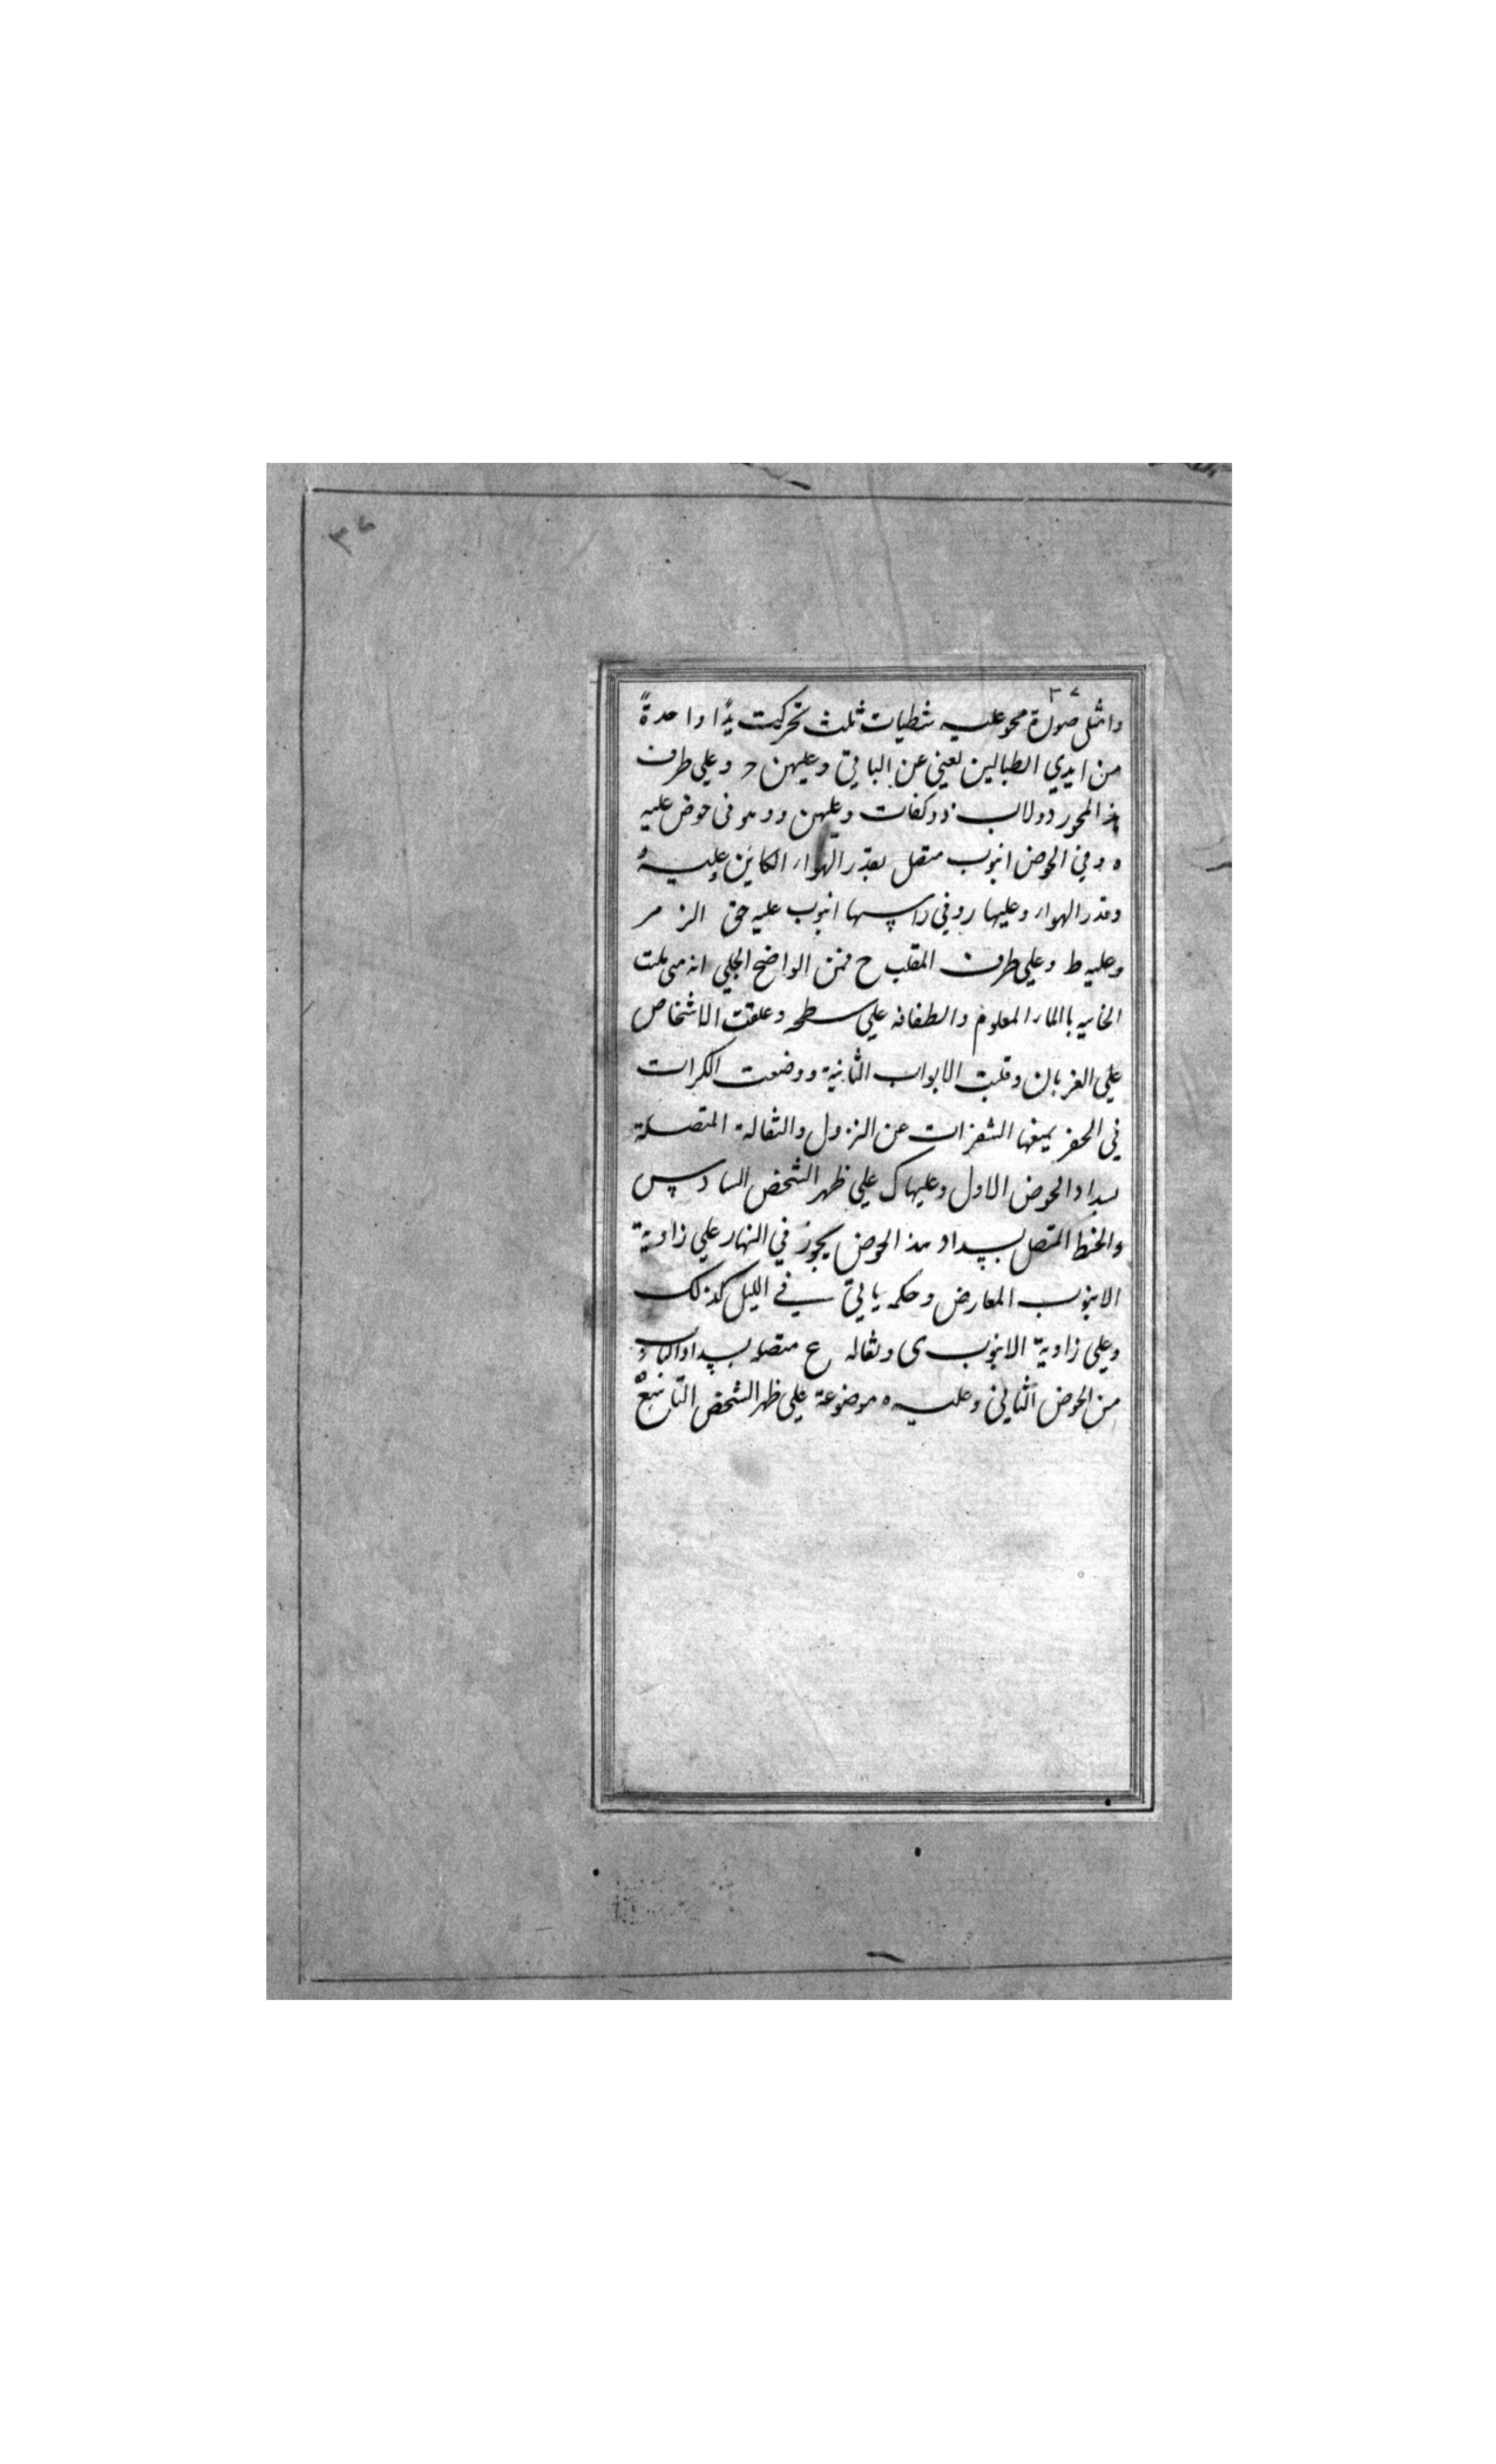 ٣٧
٣٧
وامثل صورة محور عليه شظيات ثلث تحركت يدًا واحدةً
من ايدي الطبالين لعيني عن الباقي وعليهن د وعلي طرف
هذا المحور دولاب ذو كفات وعليهن و وهو فى حوض عليه
ه وفي الحوض انبوب متصل بقدر الهواء الكاين وعليه و
وقدر الهواء وعليها ر وفي راسها انبوب عليه حق الزمر
وعليه ط وعلي طرف المقلب ح فمن الواضح الجلي انه متى ملت
الخابيه باالماء المعلوم والطفافه علي سطحه وعلقت الاشخاص
علي الغربان وقلبت الابواب الثانية ووضعت الكرات
في الحفر يمنعها الشفرات عن النزول والثقالة المتصلة
بسداد الحوض الاول وعليها ك علي ظهر الشخص السادس
والخيط المتصل بسداد هذا الحوض يجوز في النهار علي زاوية
الانبوب المعارض وحكمه ياتي في الليل كذلك
وعلي زاوية الانبوب ى وثقاله ع متصله بسداد الباب
من الحوض الثاني وعليه ه موضوعة علي ظهر الشخص التاسع